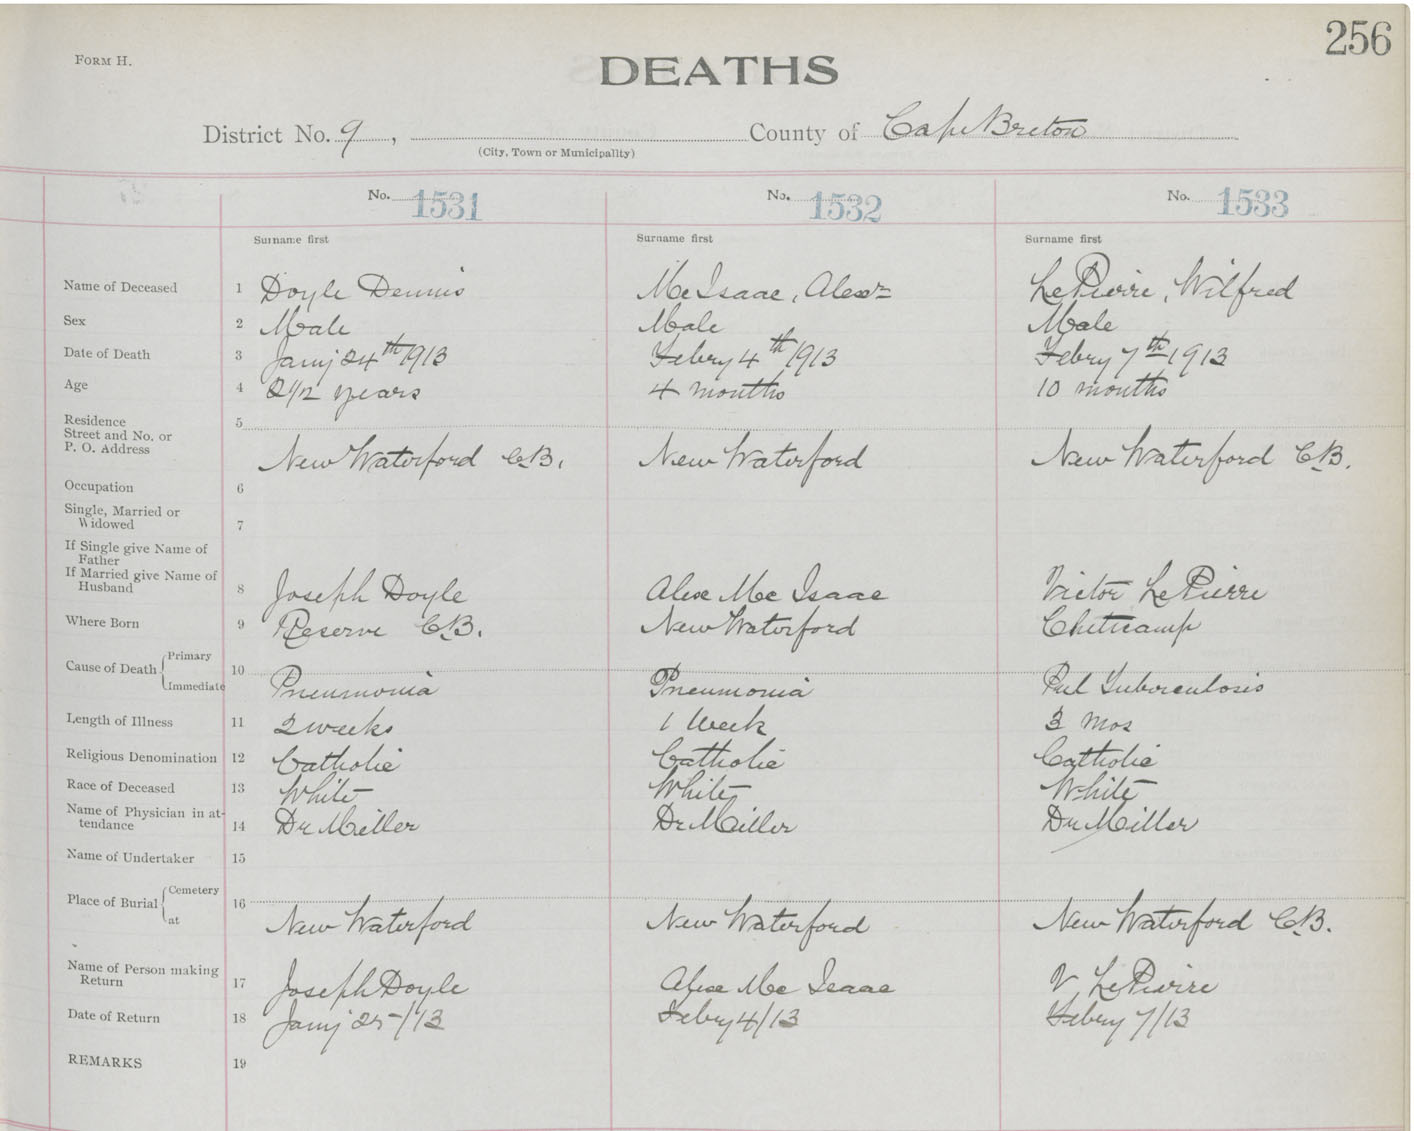 256
FORM H.
DEATHS
District No. 9, County of Cape Breton
(City, Town or Municipality)
No. 1531 No. 1532 No. 1533
Surname first Surname first Surname first
Name of Deceased 1 Doyle Dennis McIsaac, Alexr LePierre, Wilfred
Sex 2 Male Male Male
Date of Death 3 Jany 24th 1913 Febry 4th 1913 Febry 7th 1913
Age 4 2 1/2 years 4 months 10 months
Residence 5
Street and No. or
P. O. Address New Waterford C.B. New Waterford New Waterford C.B.
Occupation 6
Single, Married or
Widowed 7
If Single give Name of
Father
If Married give Name of
Husband 8 Joseph Doyle Alex Mc Isaac Victor LePierre
Where Born 9 Reserve C.B. New Waterford Cheticamp
Cause of Death Primary 10
Immediate Pneumonia Pneumonia Pul Tuberculosis
Length of Illness 11 2 weeks 1 Week 3 mos
Religious Denomination 12 Catholic Catholic Catholic
Race of Deceased 13 White White White
Name of Physician in at-
tendance 14 Dr Miller Dr Miller Dr Miller
Name of Undertaker 15
Place of Burial Cemetery 16
at New Waterford New Waterford New Waterford C.B.
Name of Person making
Return 17 Joseph Doyle Alex Mc Isaac V. LePierre
Date of Return 18 Jany 25/13 Febry 4/13 Febry 7/13
REMARKS 19